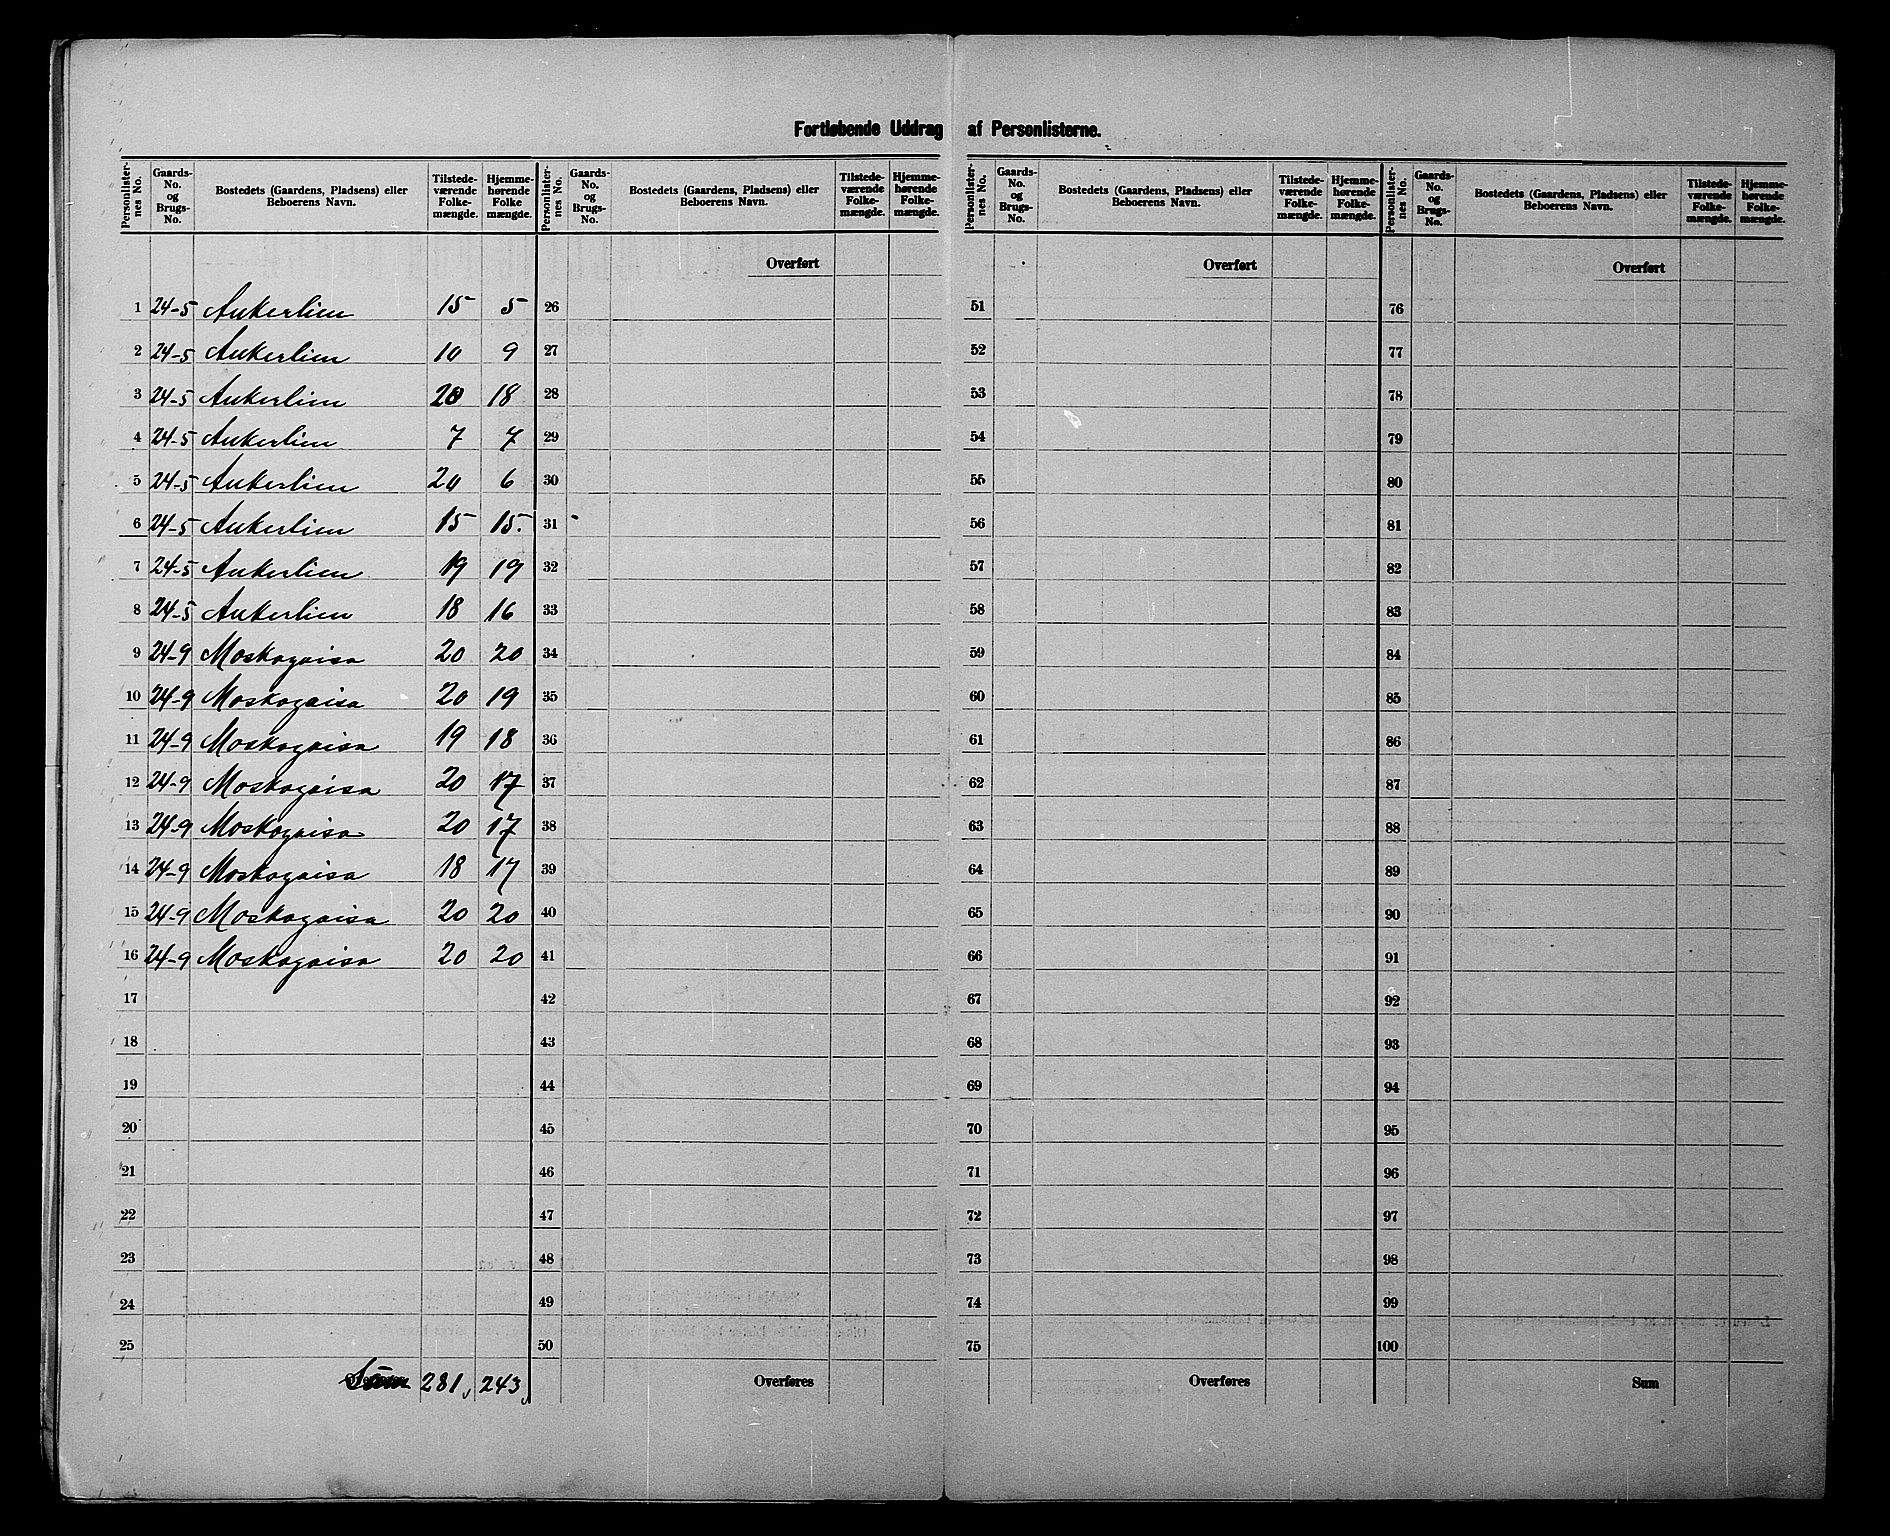 Fortløbende Uddrag af Personlisterne.
Personlister-nes No. | Gaards-No. og Brugs-No. | Bostedets (Gaardens, Pladsens) eller Beboerens Navn. | Tilstede-værende Folke-mængde. | Hjemme-hørende Folke mængde.
1 24-5 Ankerlien 15 5
2 24-5 Ankerlien 10 9
3 24-5 Ankerlien 20 18
4 24-5 Ankerlien 7 7
5 24-5 Ankerlien 20 6
6 24-5 Ankerlien 15 15.
7 24-5 Ankerlien 19 19
8 24-5 Ankerlien 18 16
9 24-9 Moskogaisa 20 20
10 24-9 Moskogaisa 20 19
11 24-9 Moskogaisa 19 18
12 24-9 Moskogaisa 20 17
13 24-9 Moskogaisa 20 17
14 24-9 Moskogaisa 18 17
15 24-9 Moskogaisa 20 20
16 24-9 Moskogaisa 20 20
17
18
19
20
21
22
23
24
25
Sum 281 243
Personlister-nes No. | Gaards-No. og Brugs-No. | Bostedets (Gaardens, Pladsens) eller Beboerens Navn. | Tilstede-værende Folke-mængde. | Hjemme-hørende Folke-mængde.
Overført
26
27
28
29
30
31
32
33
34
35
36
37
38
39
40
41
42
43
44
45
46
47
48
49
50
Overføres
Personlister-nes No. | Gaards-No. og Brugs-No. | Bostedets (Gaardens, Pladsens) eller Beboerens Navn. | Tilstede-værende Folke-mængde. | Hjemme-hørende Folke-mængde.
Overført
51
52
53
54
55
56
57
58
59
60
61
62
63
64
65
66
67
68
69
70
71
72
73
74
75
Overføres
Personlister-nes No. | Gaards-No. og Brugs-No. | Bostedets (Gaardens, Pladsens) eller Beboerens Navn. | Tilstede-værende Folke-mængde. | Hjemme-hørende Folke-mængde.
Overført
76
77
78
79
80
81
82
83
84
85
86
87
88
89
90
91
92
93
94
95
96
97
98
99
100
Sum